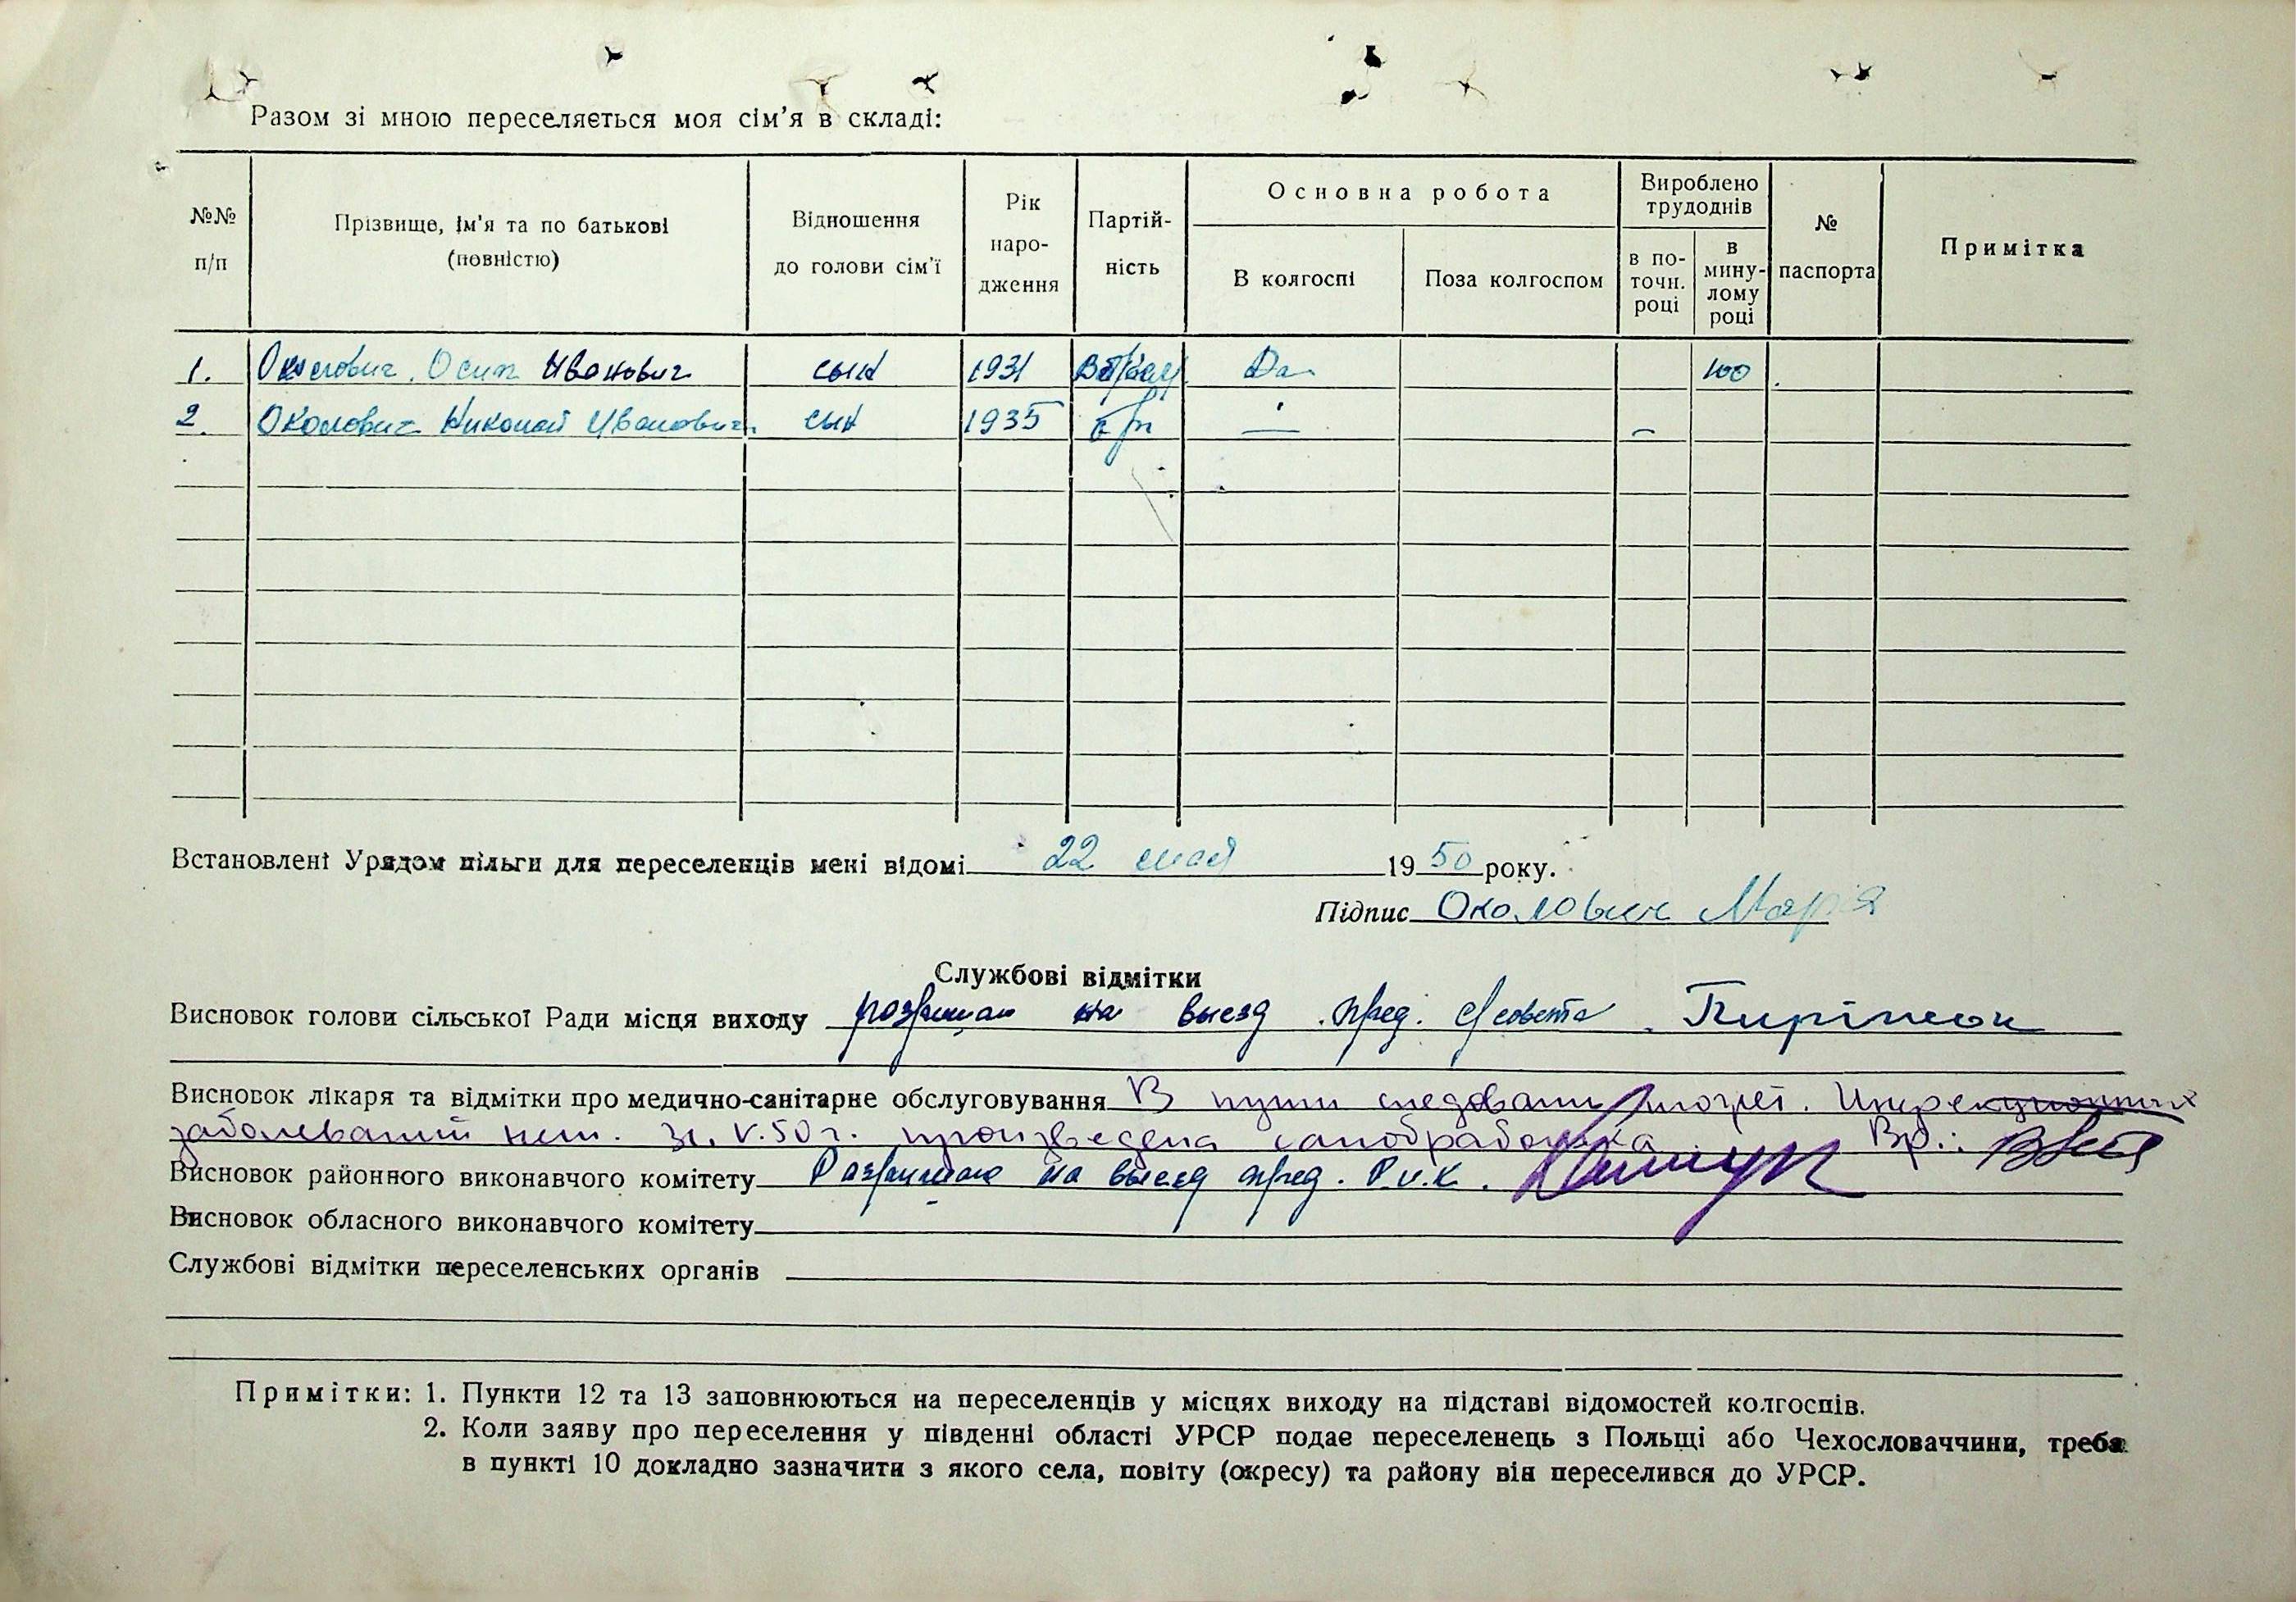 Разом зі мною переселяється моя сім'я в складі:
№№ п/п
Прізвище, ім'я та по батькові (повністю)
Відношення до голови сім'ї
Рік наро-дження
Партій-ність
Основна робота
В колгоспі
Поза колгоспом
Вироблено трудоднів
в по-точн. році
в мину-лому році
№ паспорта
Примітка
1. Околович Осип Иванович сын 1931 Да 100
2. Околович Николай Иванович сын 1935 б/п — —
Встановлені Урядом пільги для переселенців мені відомі 22 мая 1950 року.
Підпис Околович Марія
Службові відмітки
Висновок голови сільської Ради місця виходу на выезд пред. с/совета
Висновок лікаря та відмітки про медично-санітарне обслуговування В пути следования Инфекционных
заболеваний нет. 31.V.50 г. произведена санобработка. Вр.:
Висновок районного виконавчого комітету Разрешаю на выезд пред. Р.и.к.
Висновок обласного виконавчого комітету
Службові відмітки переселенських органів
Примітки: 1. Пункти 12 та 13 заповнюються на переселенців у місцях виходу на підставі відомостей колгоспів.
2. Коли заяву про переселення у південні області УРСР подає переселенець з Польщі або Чехословаччини, треба
в пункті 10 докладно зазначити з якого села, повіту (окресу) та району він переселився до УРСР.